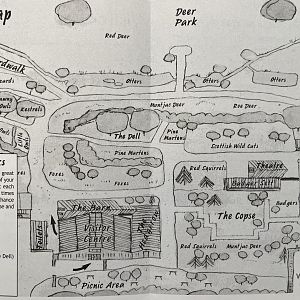 ap
Deer
Park
Red Deer
rdwalk
Otters
Otters
Otters
Kestrels
Owls
Muntjac Deer
Roe Deer
The Dell
Pine
Martens
Scottish Wild Cats
Pine Martens
Foxes
Foxes
Red Squirrels
Theatre
great
of your
each
times
chance
se and
Dell)
Badgers
The Barn
Visitor
Centre
Toilets
The Copse
Red Squirrels
Muntjac Deer
Picnic Area